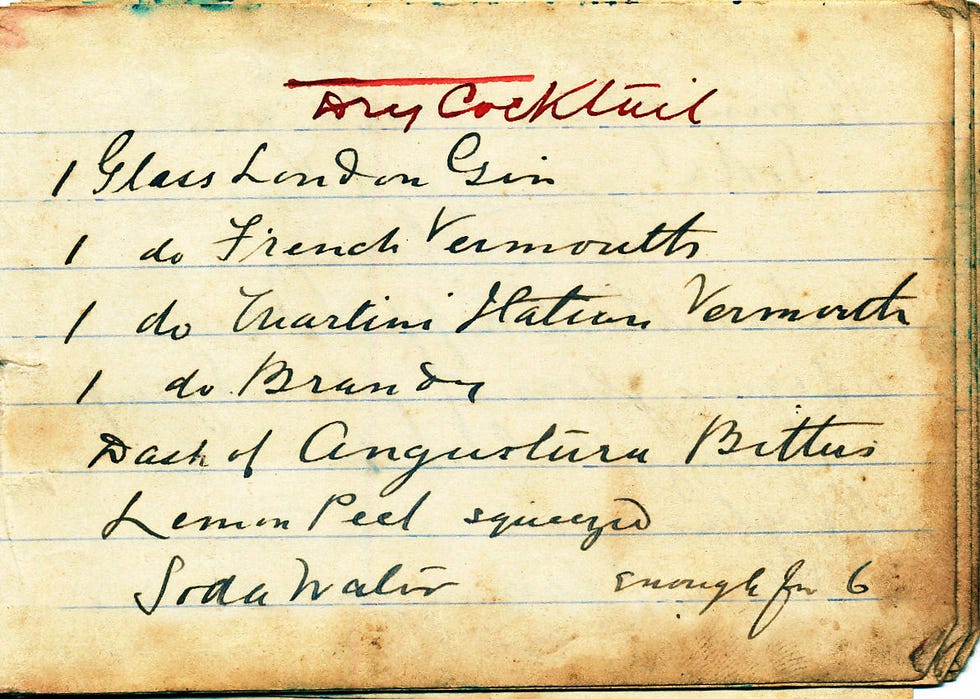 Dry Cocktail
1 Glass London Gin
1 do French Vermouth
1 do Martini Italian Vermouth
1 do Brandy
Dash of Angustura Bitters
Lemon Peel squeezed
Soda Water enough for 6